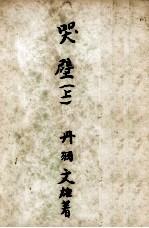 哭壁(上)
丹羽文雄著